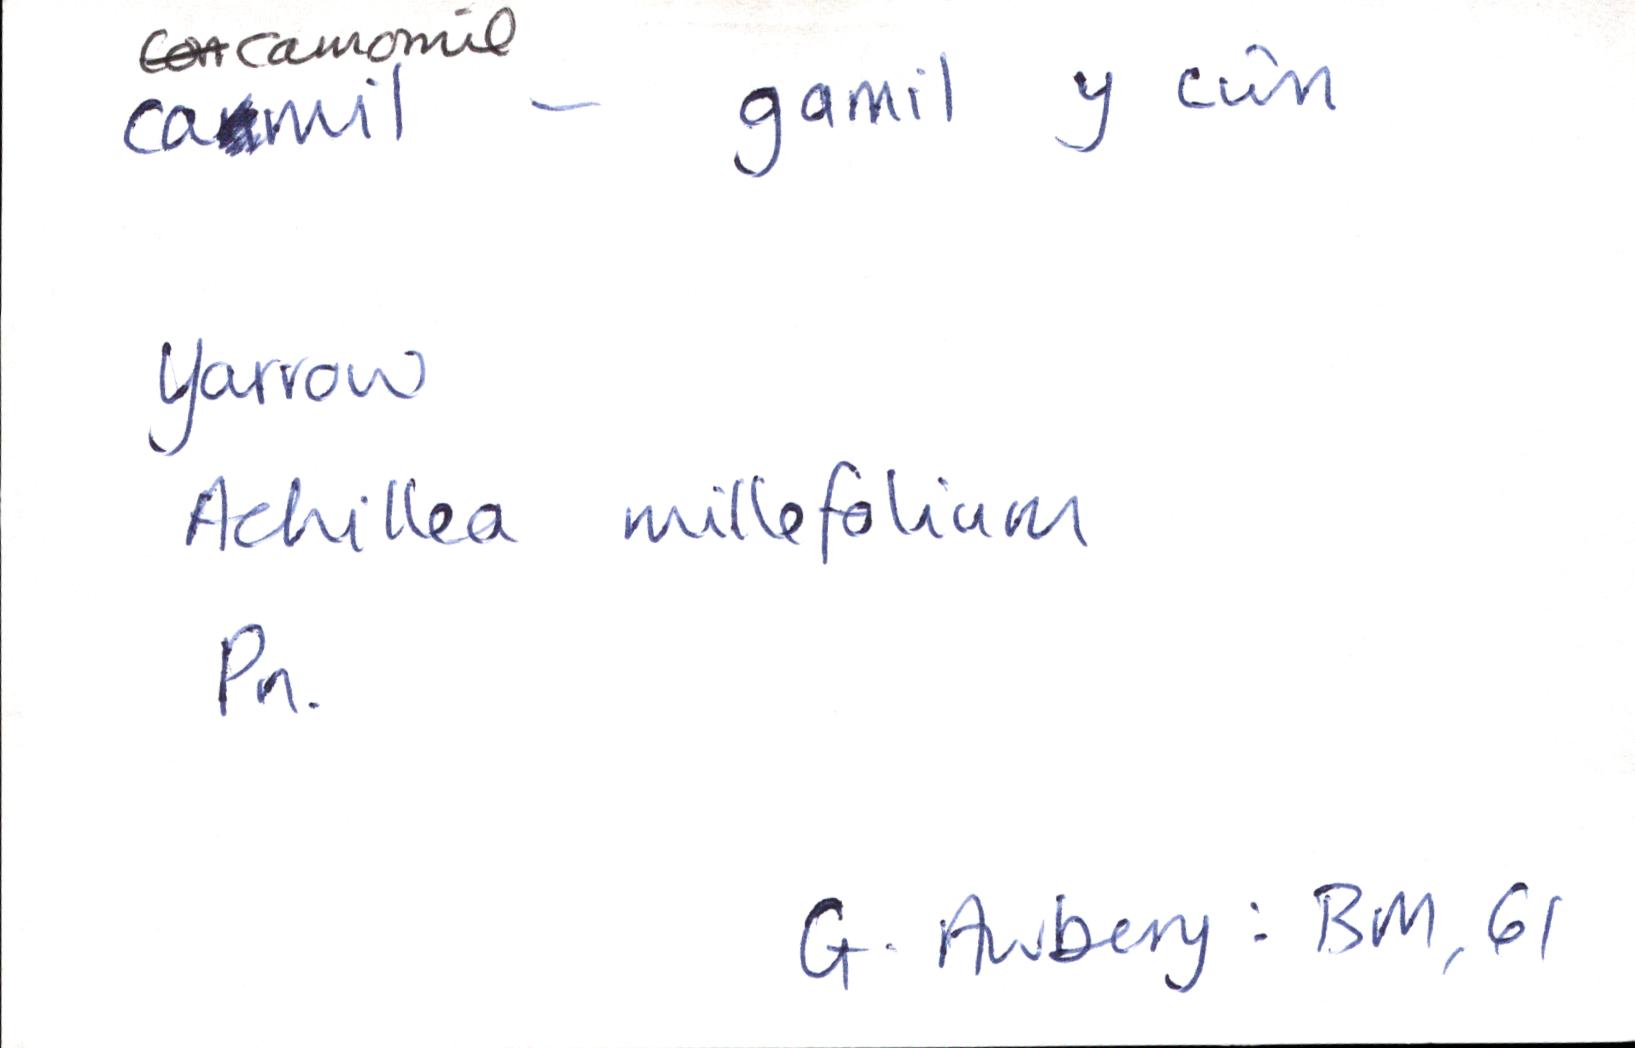 camomil
camil - gamil y cŵn
Yarrow
Achillea millefolium
Pn.
G. Awbery: BM, 61